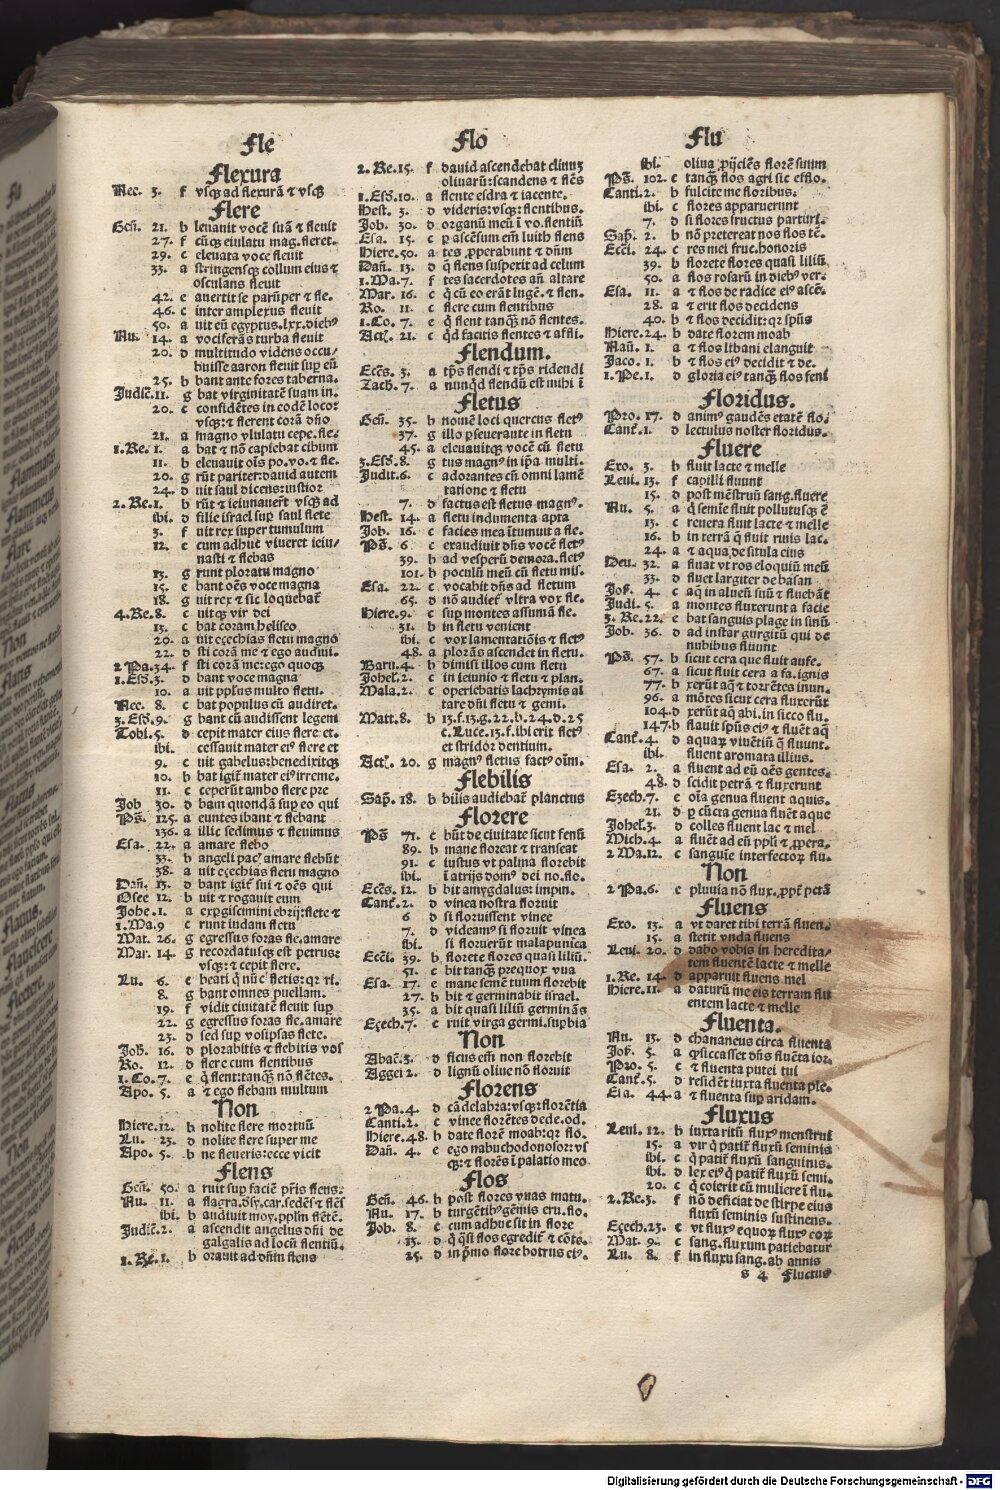 Fle
Flexura
Nec. 3. f vsq; ad flexurã ⁊ vsq;
Flere
Geñ. 21. b leuauit vocẽ suã ⁊ fleuit
27. f cũq; eiulatu mag. fleret.
29. c eleuata voce fleuit
33. a stringensq; collum eius ⁊
osculans fleuit
42. e auertit se parũper ⁊ fle.
46. c inter amplexus fleuit
50. a uit eũ egyptus .lxx. diebꝰ
Nu. 14. a vociferãs turba fleuit
20. d multitudo videns occu/
buisse aaron fleuit sup eũ
25. b bant ante fores taberna.
Judic̃. 11. g bat virginitatẽ suam in.
20. c confidẽtes in codẽ loco:
vsq; ⁊ flerent corã dño
21. a magno vlulatu cepe. fle.
1. Re. 1. a bat ⁊ nõ capiebat cibum
11. b eleuauit oĩs po. vo. ⁊ fle.
20. g rũt pariter: dauid autem
24. d uit saul dicens: iustior
2. Re. 1. b rũt ⁊ ieiunauert̃ vsq; ad
ibi. d filie israel sup saul flete
3. f uit rex super tumulum
12. c cum adhuc viueret ieiu/
nasti ⁊ flebas
13. g runt ploratu magno
15. e bant oẽs voce magna
18. g uit rex ⁊ sic loquebat̃
4. Re. 8. c uitq; vir dei
13. c bat coram heliseo
20. a uit eçechias fletu magno
22. d sti corã me ⁊ ego audiui.
2 Pa. 34. f sti corã me: ego quoq;
1. Esd̃. 3. d bant voce magna
10. a uit pplus multo fletu.
Nec. 8. c bat populus cũ audiret.
3. Esd̃. 9. g bant cũ audissent legem
Tobi. 5. d cepit mater eius flere et.
ibi. cessauit mater eiꝰ flere et
9. c uit gabelus: benedixitq;
10. b bat igit̃ mater eiꝰ irreme.
11. c ceperũt ambo flere pre
Job 30. d bam quondã sup eo qui
Ps̃. 125. a euntes ibant ⁊ flebant
136. a illic sedimus ⁊ fleuimus
Esa. 22. a amare flebo
33. b angeli pacꝭ amare flebũt
38. a uit eçechias fletu magno
Dañ. 13. d bant igit̃ sui ⁊ oẽs qui
Osee 12. b uit ⁊ rogauit eum
Johe. 1. a expgiscimini ebrij: flete ⁊
1. Ma. 9 c runt iudam fletu
Mat. 26. g egressus foras fle. amare
Mar. 14. g recordatusq; est petrus:
vsq; ⁊ cepit flere.
Lu. 6. e beati q̃ nũc fletis: qr ri.
8. g bant omnes puellam.
19. f vidit ciuitatẽ fleuit sup
22. g egressus foras fle. amare
23. d sed sup vosipsas flete.
Joh̃. 16. d plorabitis ⁊ flebitis vos
Ro. 12. d flere cum flentibus
1. Co. 7. e q̃ flent: tanq̃; nõ flẽtes.
Apo. 5. a ⁊ ego flebam multum
Non
Hiere. 12. b nolite flere mortuũ
Lu. 23. d nolite flere super me
Apo. 5. b ne fleueris: ecce vicit
Flens
Geñ. 50. a ruit sup faciẽ pr̃is flens:
Nu. 11. a flagra. dsy. car. sedẽs ⁊ flẽs
ibi. b audiuit moy. pplm̃ flẽtẽ.
Judic̃. 2. a ascendit angelus dñi de
galgalis ad locũ flentiũ.
1. Re. 1. b orauit ad dñm flens
Flo
2. Re. 15. f dauid ascendebat cliuuz
oliuarũ: scandens ⁊ flẽs
1. Esd̃. 10. a flente esdra ⁊ iacente.
Hest. 3. d videris: vsq; flentibus.
Job. 30. d organũ meũ ĩ vo. flentiũ
Esa. 15. c p ascẽsum em̃ luith flens
Hiere. 50. a tes .pperabunt ⁊ dñm
Dañ. 13. d q̃ flens suspexit ad celum
1. Ma. 7. f tes sacerdotes añ altare
Mar. 16. c q̃ cũ eo erãt lugẽ. ⁊ flen.
Ro. 11. c flere cum flentibus
1. Co. 7. e q̃ flent tanq̃; nõ flentes.
Act̃. 21. c qd̃ facitis flentes ⁊ affli.
Flendum.
Ecc̃s. 3. a tp̃s flendi ⁊ tp̃s ridendi
Zach. 7. a nunqd̃ flendũ est mihi ĩ
Fletus
Geñ. 35. b nomẽ loci quercus fletꝰ
37. g illo pseuerante in fletu
45. a eleuauitq; vocẽ cũ fletu
3. Esd̃. 8. g tus magnꝰ in ip̃a multi.
Judit. 6. c adorantes cũ omni lamẽ
tatione ⁊ fletu
7. d factus est fletus magnꝰ.
Hest. 14. a fletu indumenta apta
Job. 16. c facies mea ĩtumuit a fle.
Ps̃. 6 c exaudiuit dñs vocẽ fletꝰ
39. b ad vesperũ demora. fletꝰ
101. b poculũ meũ cũ fletu mis.
Esa. 22. c vocabit dñs ad fletum
65. d nõ audiet̃ vltra vox fle.
Hiere. 9. c sup montes assumã fle.
31. b in fletu venient
ibi. c vox lamentationĩs ⁊ fletꝰ
48. a plorãs ascendet in fletu.
Baru. 4. b dimisi illos cum fletu
Johel. 2. c in ieiunio ⁊ fletu ⁊ plan.
Mala. 2. c operiebatis lachrymis al
tare dñi fletu ⁊ gemi.
Matt. 8. b 13. f. 13. g. 22. b. 24. d. 25
c. Luce. 13. f. ibi erit fletꝰ
et stridor dentium.
Act̃. 20. g magnꝰ fletus factꝰ oĩm.
Flebilis
Sap̃. 18. b bilis audiebat̃ planctus
Florere
Ps̃ 71. c bũt de ciuitate sicut fenũ
89. b mane floreat ⁊ transeat
91. c iustus vt palma florebit
ibi. ĩ atrijs domꝰ dei no. flo.
Ecc̃s. 12. b bit amygdalus: impin.
Cant̃. 2. d vinea nostra floruit
6 d si floruissent vinee
7. d videamꝰ si floruit vinea
ibi. si floruerũt malapunica
Ecc̃i. 39. b florete flores quasi liliũ.
51. c bit tanq̃; precox vua
Esa. 17. e mane semẽ tuum florebit
27. b bit ⁊ germinabit israel.
35. a bit quasi liliũ germinãs
Eçech. 7. c ruit virga germi. supbia
Non
Abac̃. 3. d ficus em̃ non florebit
Aggei 2. d lignũ oliue nõ floruit
Florens
2 Pa. 4. d cãdelabra: vsq; florẽtia
Canti. 2. c vinee florẽtes dede. od.
Hiere. 48. b date florẽ moab: qr flo.
Dañ. 4. e ego nabuchodonosor: vs
q; ⁊ florẽs ĩ palatio meo
Flos
Geñ. 46. b post flores vuas matu.
Nu. 17. b turgẽtibꝰ gẽmis eru. flo.
Job. 8. c cum adhuc sit in flore
13. d q̃ q̃si flos egredit̃ ⁊ cõte.
25. d in p̃mo flore botrus eiꝰ.
Flu
ibi. oliua pijciẽs florẽ suum
Ps̃. 102. c tanq̃; flos agri sic efflo.
Canti. 2. b fulcite me floribus.
ibi. c flores apparuerunt
7. d si flores fructus parturi.
Sap̃. 2. b nõ pretereat nos flos tẽ.
Ecc̃i. 24. c res mei fruc. honoris
39. b florete flores quasi liliũ.
50. a flos rosarũ in diebꝰ ver.
Esa. 11. a ⁊ flos de radice eiꝰ ascẽ.
28. a ⁊ erit flos decidens
40. b ⁊ flos decidit: qr spũs
Hiere. 24. b date florem moab
Naũ. 1. a ⁊ flos libani elanguit
Jaco. 1. b ⁊ flos eiꝰ decidit ⁊ de.
1. Pe. 1. d gloria eiꝰ tanq̃; flos feni
Floridus.
Pro. 17. d animꝰ gaudẽs etatẽ flo.
Cant̃. 1. d lectulus noster floridus.
Fluere
Exo. 3. b fluit lacte ⁊ melle
Leui. 13. f capilli fluunt
15. d post mẽstruũ sang. fluere
Nu. 5. a q̃ semĩe fluit pollutusq; ẽ
13. c reuera fluit lacte ⁊ melle
16. b in terrã q̃ fluit riuis lac.
24. a ⁊ aqua de situla eius
Deu. 32. a fluat vt ros eloquiũ meũ
33. d fluet largiter de basan
Jos̃. 4. c aq̃ in alueũ suũ ⁊ fluebãt
Judi. 5. a montes fluxerunt a facie
3. Re. 22. e bat sanguis plage in sinũ
Job. 36. d ad instar gurgitũ qui de
nubibus fluunt
Ps̃. 57. b sicut cera que fluit aufe.
67. a sicut fluit cera a fa. ignis
77. b xerũt aq̃ ⁊ torrẽtes inun.
96. a mõtes sicut cera fluxerũt
104. d xerũt aq̃ abi. in sicco flu.
147. b flauit spũs eiꝰ ⁊ fluẽt aq̃
Cant̃. 4. d aquaꝝ viuẽtiũ q̃ fluunt.
ibi. fluent aromata illius.
Esa. 2. a fluent ad eũ oẽs gentes.
48. d scidit petrã ⁊ fluxerunt
Ezech. 7. c oĩa genua fluent aquis.
21. d p cũcta genua fluẽt aque
Johel. 3. d colles fluent lac ⁊ mel
Mich. 4. a fluẽt ad eũ ppli ⁊ ppera.
2 Ma. 12. c sanguĩe interfectoꝝ flu.
Non
2 Pa. 6. e pluuia nõ flux. ppt̃ pctã
Fluens
Exo. 13. a vt daret tibi terrã fluen.
15. a stetit vnda fluens
Leui. 20. d dabo vobis in heredita/
tem fluentẽ lacte ⁊ melle
1. Re. 14. d apparuit fluens mel
Hiere. 11. a daturũ me eis terram flu
entem lacte ⁊ melle
Fluenta.
Nu. 13. d chananeus circa fluenta
Jos̃. 5. a q̃siccasset dñs fluẽta ior.
Pro. 5. c ⁊ fluenta putei tui
Cant̃. 5. d residẽt iuxta fluenta ple.
Esa. 44. a ⁊ fluenta sup aridam.
Fluxus
Leui. 12. b iuxta ritũ fluxꝰ menstrui
15. a vir q̃ patit̃ fluxũ seminis
ibi. c q̃ patit̃ fluxũ sanguinis.
ibi. d lex eiꝰ q̃ patit̃ fluxũ semi.
20. c q̃ coierit cũ muliere ĩ flu.
2. Re. 3. f nõ deficiat de stirpe eius
fluxũ seminis sustinens.
Eçech. 23. c vt fluxꝰ equoꝝ fluxꝰ eoꝝ
Mat. 9. c sang. fluxum patiebatur
Lu. 8. f in fluxu sang. ab annis
s 4 Fluctus
Digitalisierung gefördert durch die Deutsche Forschungsgemeinschaft - DFG